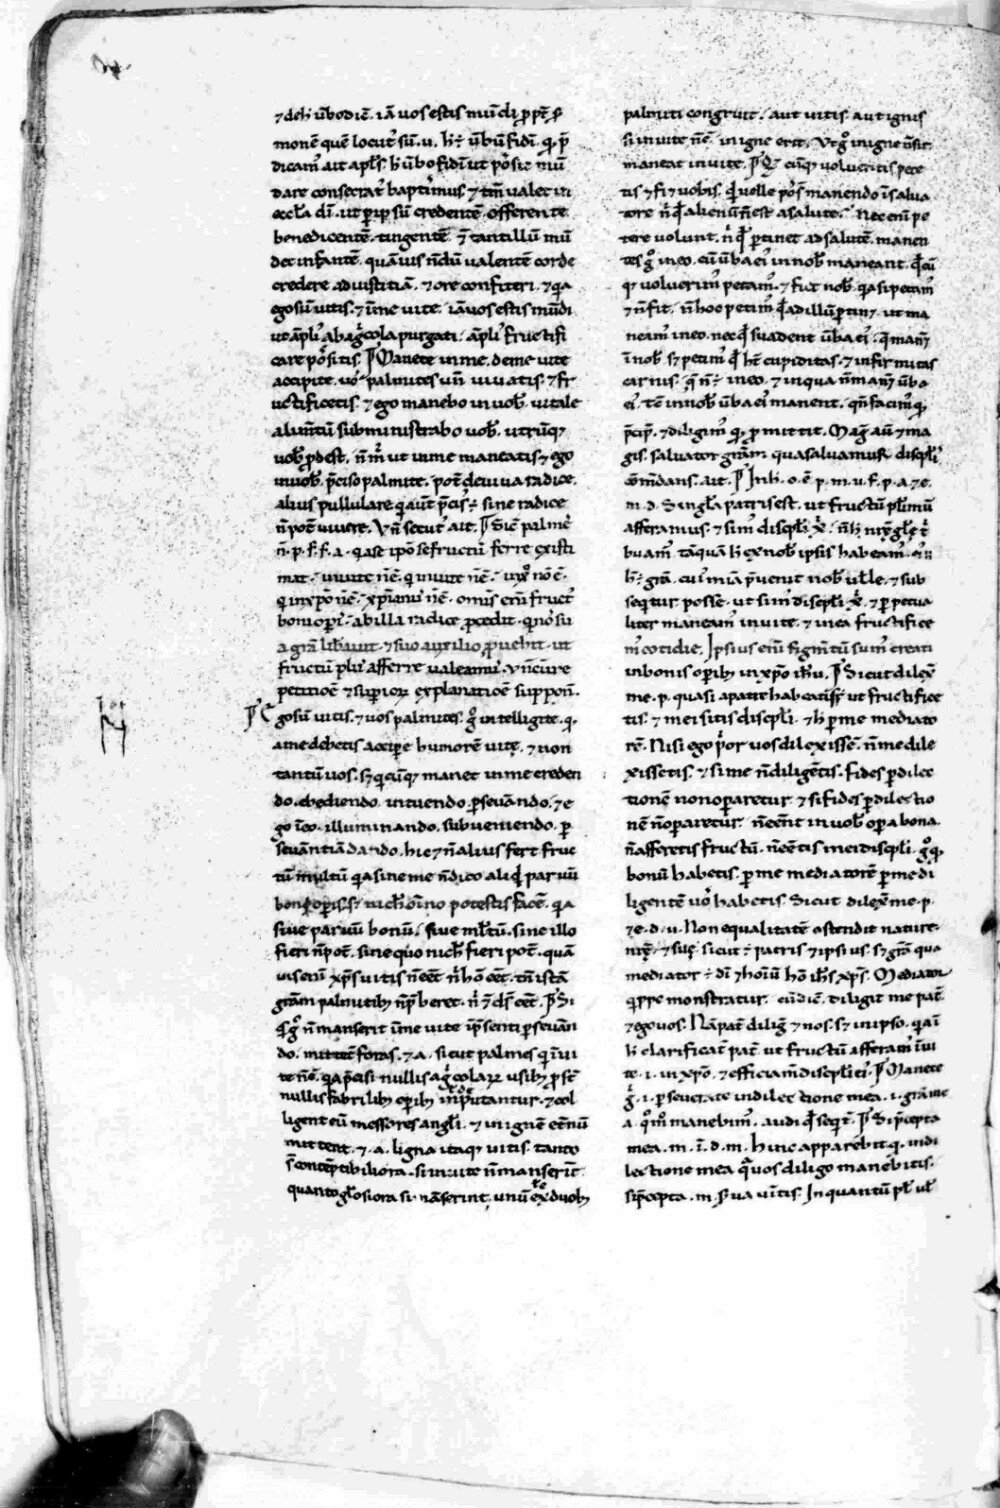 ⁊ deh ũbo diē. iā uos estis mũdi ꝓpt̃ s̃
monē quē locut᷒ sū. u. h̃ ÷ ũbũ fidi. q̃ p̃
dicam᷒ ait apl̃s. h̃ ũbo fidi ut
dare consecrat᷒ baptism᷒ ⁊ tm̃ ualet in
eccl̃a di. ut p ip̃sū credentē. offerente
benedicentē. tingentē. tantillū mũ
det infantē. quāuis nōdū ualentē corde
credere ad iustitiā. ⁊ ore confiteri. ⁊ q̃a
ego sũ uitis. ⁊ ĩ me uite. iā uos estis mũdi
ut ãpli᷒ ab ag̃cola purgati. ãpli᷒ fructifi
care possitis. Manete in me. de me uite
accipite. uos palmites uñ uiuatis. ⁊ fr
uctificetis. ⁊ ego manebo in uob̃. uitale
alimtū subministrabo uob̃. utrũq;
uob̃ ꝓdest. ut in me maneatis ⁊ ego
in uob̃. p̃ciso palmite. pot̃ de uiua radice.
alius pullulare. q̃ aũt p̃cis᷒ ÷ sine radice
ñ pot̃ uiuere. Vñ secut᷒ ait. Sic̃ palm̃
ñ. p. f. f. a. q̃a se ip̃o se fructū ferre existi
mat. in uite ñ ē. q̃ in uite ñ ē. in xp̃o nō ē.
q̃ in xp̃o ñ ē. xp̃ian᷒ ñ ē. omis eni fruct᷒
boni op̃is ab illa radice ꝓcedit. q̃ nos su
a grā libauit. ⁊ suo auxilio ꝓuehit. ut
fructū plu᷒ afferre ualeam᷒.
petitiōe ⁊ supioꝝ explanatiōe suppoñ.
Ego sũ uitis. ⁊ uos palmites. g̊ intelligite. q̃
a me debetis accipe humorē uitę. ⁊ non
tantũ uos. s; q̃cũq; manet in me creden
do. obediendo. intuendo. pseuãndo. ⁊ e
go ĩ eo. illuminando. subueniendo. p
seuãntiā dando. hic ⁊ ñ alius fert fruc
tũ multũ. q̃a sine me ñ dico aliq̃d paruũ
boni opis. s; nich̃ oĩno potestis facē. q̃a
siue paruũ bonũ. siue mltũ. sine illo
fieri ñ pot̃. sine quo nich̃ fieri pot̃. quā
uis eni xp̃s uitis ñ eēt n̊ hō eēt. tñ istā
grām palmitib; ñ p̃beret. n̊ ⁊ ds̃ eēt. Si
q̃s g̊ ñ manserit ĩ me uite
do. mittet foras. ⁊ a. sicut palmes q̃ ĩ ui
te ñ ē. q̃a p̃cisi nullis ag̊colaꝝ usib; ꝓst̃
nullis fabrilib; opib; inputantur. ⁊ col
ligent eũ messores angl̃i. ⁊ in ignē etnũ
mittent. ⁊ a. ligna itaq; uitis. tanto
s̃ contēptibiliora. si in uite ñ manserit
quanto gl̃osiora si manserint. unũ ex duob;
palmiti congruit. aut uitis. aut ignis
si in uite ñ ē. in igne erit. Vt g̊ in igne ñ sit
maneat in uite. Q̃ cũq; uolueritis pete
tis ⁊ fi᷑ uobis. q̃ uelle pos᷒ manendo ĩ salua
tore n̊ q̃d alienũ ñ est a salute. Nec eni pe
tere uolunt. n̊ q̃d ptinet ad salutē. manen
tes g̊ in eo. cũ ũba ei᷒ in nob̃ maneant. q̃dcũ
q; uoluerim᷒ petam᷒. ⁊ fiet nob̃. q̃a si petam᷒
⁊ ñ fit. ñ hoc petim᷒ q̃d ad illũ ptin᷑. ut ma
neam᷒ in eo. nec q̃d suadent ũba ei᷒. q̃ man᷑
ĩ nob̃. s; petim᷒ q̃d h᷑ cupiditas. ⁊ infirmitas
carnis. q̃ ñ ÷ in eo. ⁊ in qua ñ man᷑ ũba
ei᷒. tc̃ in nob̃ ũba ei᷒ manent. qñ facim᷒ q̃
p̃cip̃. ⁊ diligim᷒ q̃ ꝓmittit. Mag̃ aũ ⁊ ma
gis. saluator grām qua saluamur discipl̃is
cōm̃dans. ait. In h. o. ē. p. m. u. f. p. a. ⁊ e.
m. d. Singl̃a patris est. ut fructũ plimũ
afferamus. ⁊ sim᷒ discipl̃i x̃. ñ h̃ nr̃ę gl̃ę t̊
buam᷒. tãquā h̃ ex nob̃ ipsis habeam᷒.
h̃ ÷ grā. cui᷒ mĩa p̃uenit nob̃ uelle. ⁊ sub
seq̃tur posse. ut sim᷒ discipl̃i x̃. ⁊ ppetua
liter maneam᷒ in uite. ⁊ in ea fructifice
m᷒ cotidie. Ipsius eni figm̃tũ sum᷒ creati
in bonis opib; in xp̃o ih̃u. Sicut dilex̃
me. p. quasi a patre habeatis. ut fructifice
tis. ⁊ mei sitis discipl̃i. ⁊ h̃ p me mediato
rē. Nisi ego p̊or uos dilexissē. ñ me dile
xissetis. ⁊ si me ñ diligētis. fides p dilec
tionē non oparetur ⁊ si fides p dilectio
nē ñ oparetur. ñ eēnt in uob̃ opa bona.
ñ afferetis fructũ. ñ eētis mei discipl̃i. g̊ q̃
bonũ habetis. p me mediatorē p me di
ligentē uos habetis. Sicut dilex̃ me. p.
⁊ e. d. u. Non equalitatē ostendit nature.
nr̃ę. ⁊ suę. sicut ÷ patris ⁊ ipsius. s; grā qua
mediator ÷ di ⁊ hoĩũ hō ih̃s xp̃s. Mediator
q̃ppe monstratur. cũ diē. diligit me pat̃.
⁊ ego uos. Nā pat̃ dilig᷑ ⁊ nos. s; in ipso. q̃a ĩ
h̃ clarificat᷒ pat̃. ut fructũ afferam᷒ ĩ ui
te. i. in xp̃o. ⁊ efficiam᷒ discipl̃i ei᷒. Manete
g̊. i. pseuerate in dilectione mea. i. grā me
a. q̃m᷒ manebim᷒. audi q̃d seq̃t̃. Si p̃cepta
mea. m. ĩ. d. m. hinc apparebit q̃. in di
lectione mea q̃ uos diligo manebitis.
si p̃cepta. m. suauitis. In quantũ pl̃ ul̃